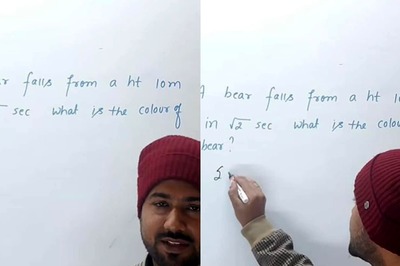 r falls from a ht 10m
sec what is the colour of
A bear falls from a ht 10
in √2 sec what is the colou
bear?